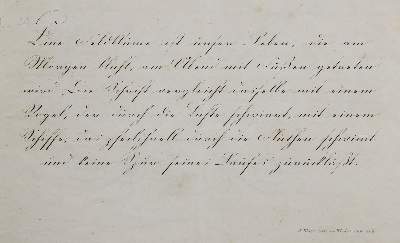 Eine Feldblume ist unser Leben, die am
Morgen blüht, am Abend mit Füßen getreten
wird. Die Schrift vergleicht dasselbe mit einem
Vogel, der durch die Lüfte schwirrt, mit einem
Schiffe, das pfeilschnell durch die Wellen schwimt
und keine Spur seines Laufes zurückläßt.